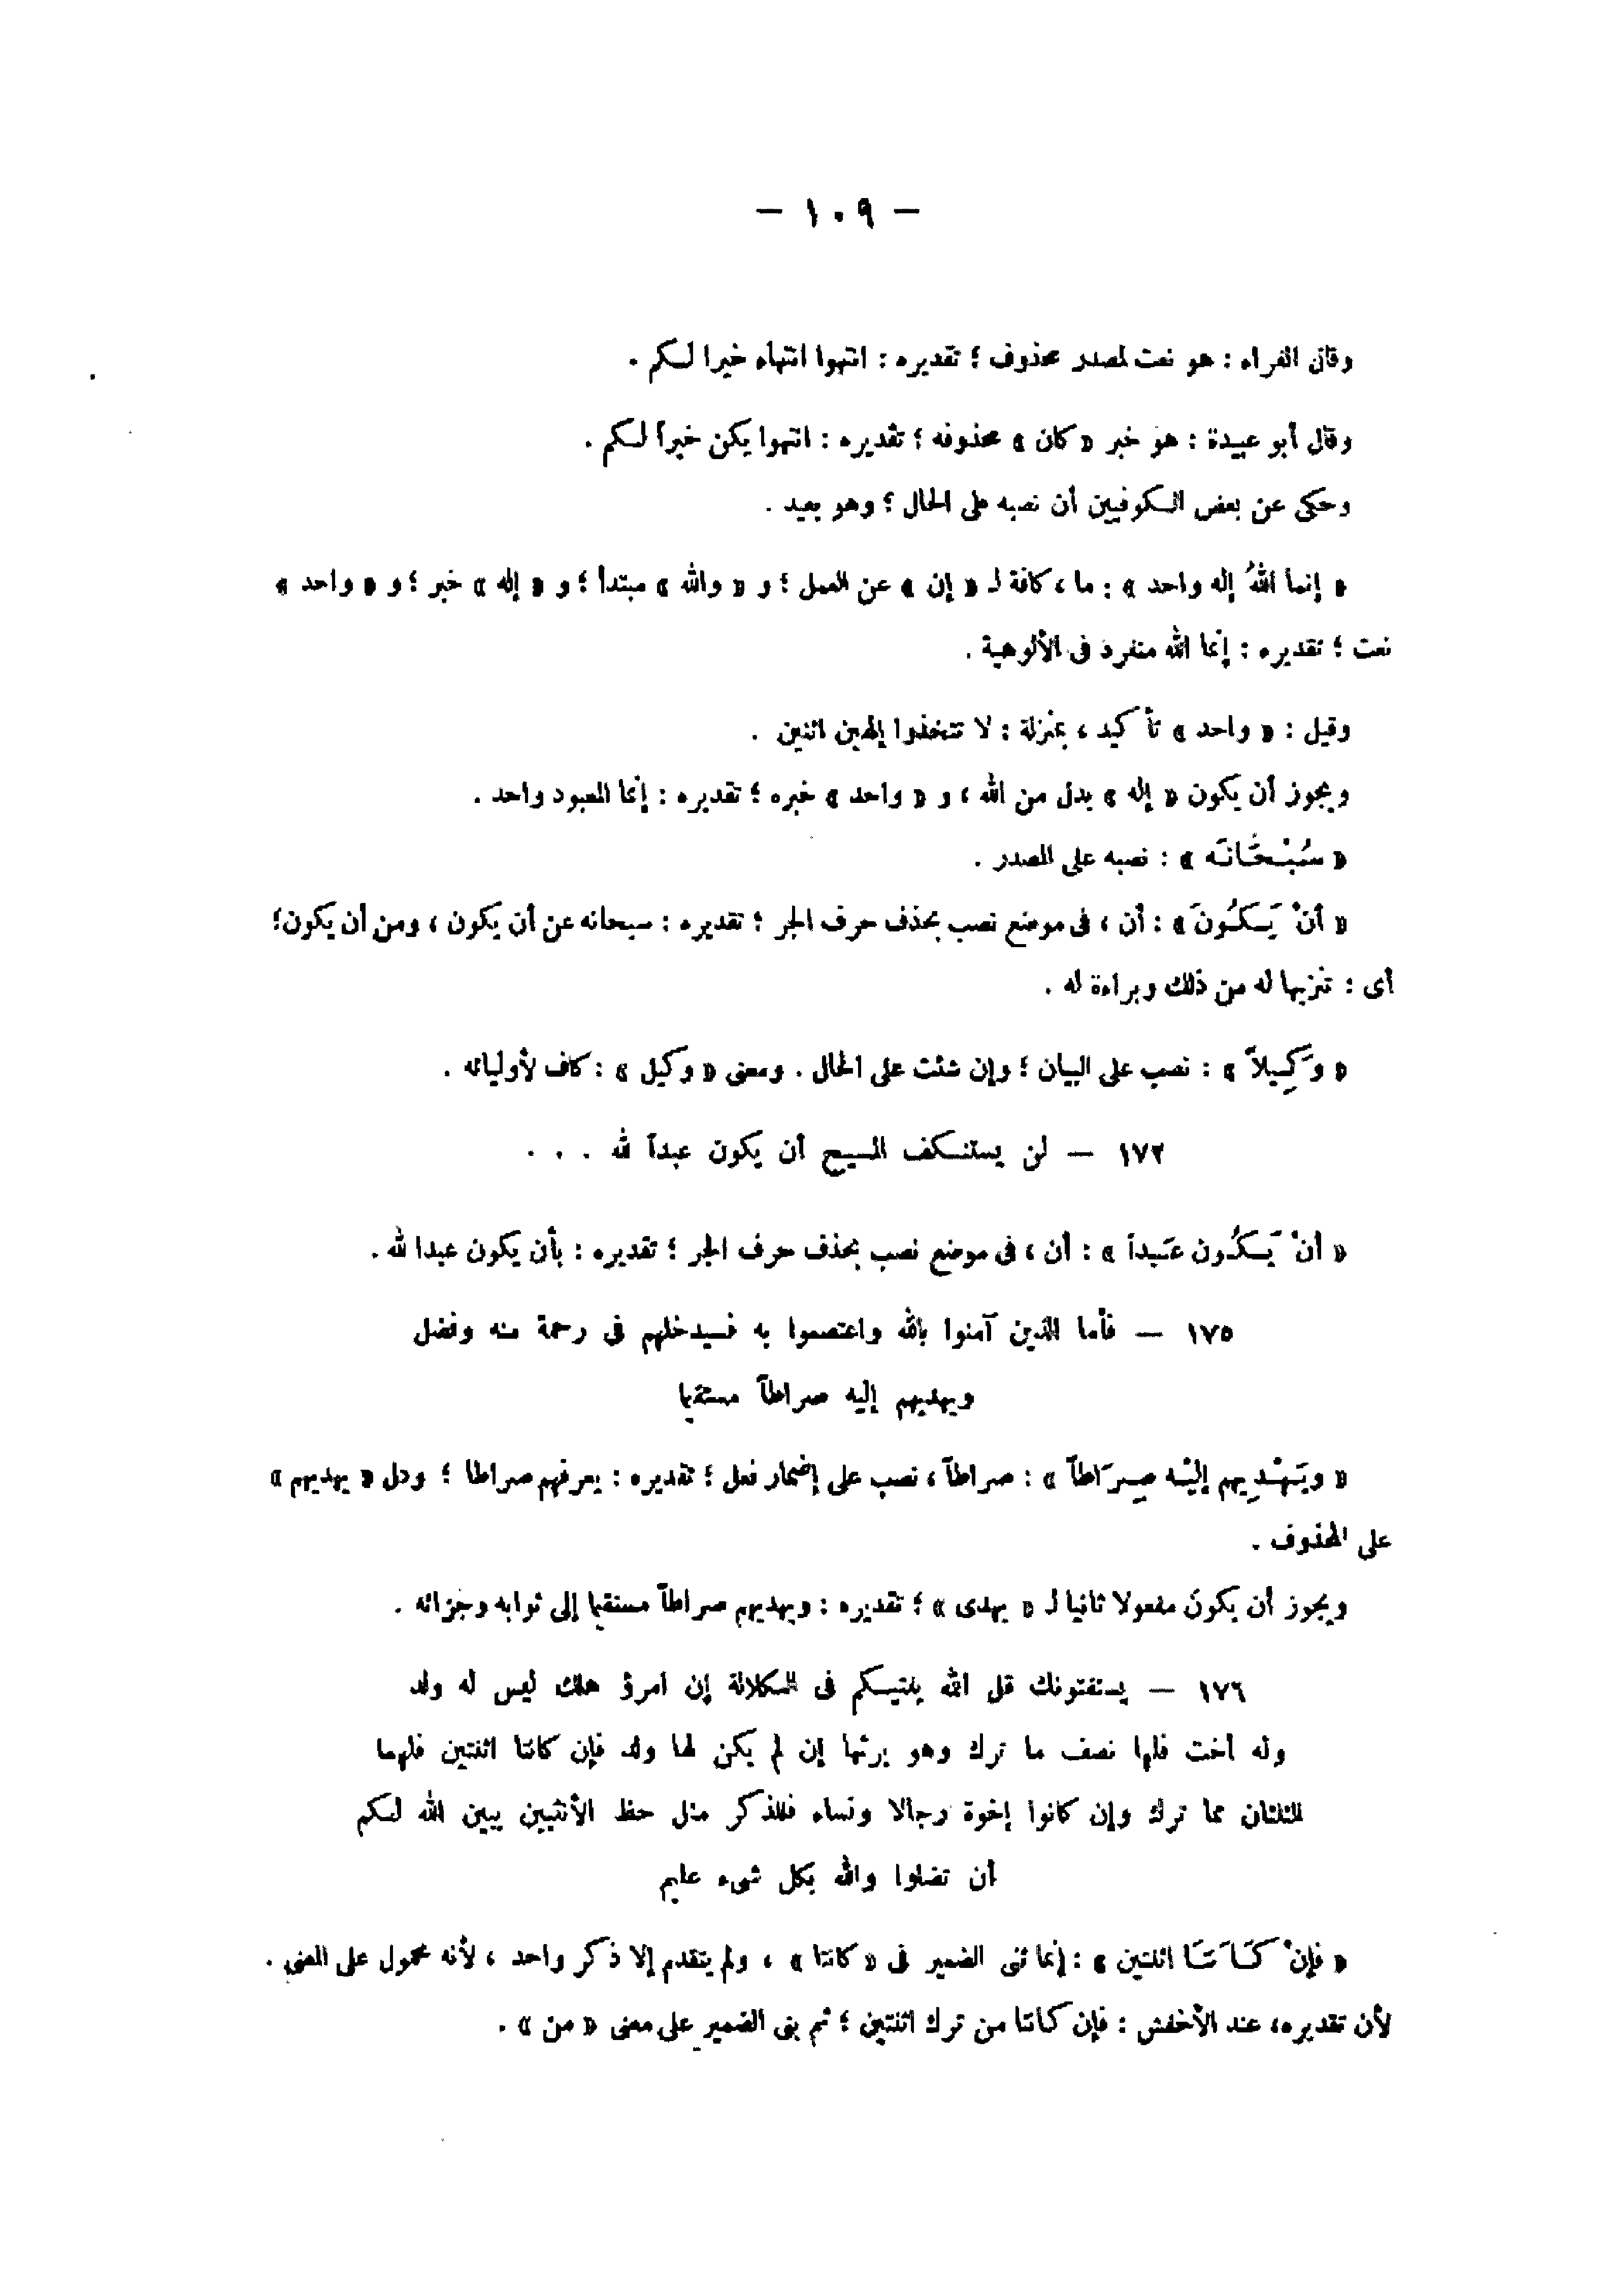 — ١٠٩ —
وقال الفراء : هو نعت لمصدر محذوف ؛ تقديره : انتهوا انتهاء خيرا لكم .
وقال أبو عبيدة : هو خبر « كان » محذوفه ؛ تقديره : انتهوا يكن خيراً لكم .
وحكى عن بعض الكوفيين أن نصبه على الحال ؛ وهو بعيد .
« إنما اللهُ إله واحد » : ما ، كافة لـ « إن » عن العمل ؛ و « والله » مبتدأ ؛ و « إله » خبر ؛ و « واحد »
نعت ؛ تقديره : إنما الله منفرد فى الألوهية .
وقيل : « واحد » تأكيد ، بمنزلة : لا تتخذوا إلهين اثنين .
ويجوز أن يكون « إله » بدل من الله ، و « واحد » خبره ؛ تقديره : إنما المعبود واحد .
« سُبْحَانَه » : نصبه على المصدر .
« أنْ يَكُونَ » : أن ، فى موضع نصب بحذف حرف الجر ؛ تقديره : سبحانه عن أن يكون ، ومن أن يكون؛
أى : تنزيها له من ذلك وبراءة له .
« وَكِيلاً » : نصب على البيان ؛ وإن شئت على الحال . ومعنى « وكيل » : كاف لأوليائه .
١٧٢ — لن يستنكف المسيح أن يكون عبداً لله . . .
« أنْ يَكُون عَبداً » : أن ، فى موضع نصب بحذف حرف الجر ؛ تقديره : بأن يكون عبدا لله .
١٧٥ — فأما الذين آمنوا بالله واعتصموا به فسيدخلهم فى رحمة منه وفضل
ويهديهم إليه صراطاً مستقيما
« ويَهْدِيهم إليْه صِرَاطاً » : صراطاً ، نصب على إضمار فعل ؛ تقديره : يعرفهم صراطا ؛ ودل « يهديهم »
على المحذوف .
ويجوز أن يكون مفعولا ثانيا لـ « يهدى » ؛ تقديره : ويهديهم صراطاً مستقيما إلى ثوابه وجزائه .
١٧٦ — يستفتونك قل الله يفتيكم فى الكلالة إن امرؤ هلك ليس له ولد
وله أخت فلها نصف ما ترك وهو يرثها إن لم يكن لها ولد فإن كانتا اثنتين فلهما
الثلثان مما ترك وإن كانوا إخوة رجالا ونساء فللذكر مثل حظ الأنثيين يبين الله لكم
أن تضلوا والله بكل شىء عليم
« فإنْ كَانَتَا اثنتين » : إنما ثنى الضمير فى « كانتا » ، ولم يتقدم إلا ذكر واحد ، لأنه محمول على المعنى .
لأن تقديره، عند الأخفش : فإن كانتا من ترك اثنتين ؛ ثم بنى الضمير على معنى « من » .